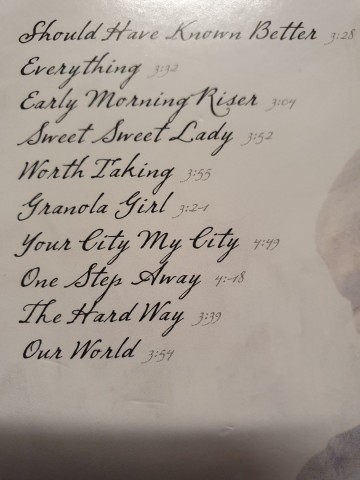 Should Have Known Better 3:28
Everything 3:32
Early Morning Riser 3:04
Sweet Sweet Lady 3:52
Worth Taking 3:55
Granola Girl 3:21
Your City My City 4:49
One Step Away 4:18
The Hard Way 3:39
Our World 3:54